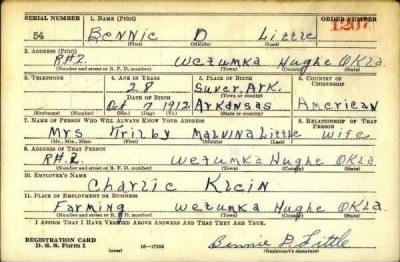 SERIAL NUMBER 1. NAME (Print) ORDER NUMBER
54 Bennie D Little 1207
(First) (Middle) (Last)
2. ADDRESS (Print)
R#2. Wetumka Hughe OKla.
(Number and street or R. F. D. number) (Town) (County) (State)
3. TELEPHONE 4. AGE IN YEARS 5. PLACE OF BIRTH 6. COUNTRY OF CITIZENSHIP
28 Suver, Ark.
DATE OF BIRTH (Town or county)
Oct 7 1912 Arkansas American
(Exchange) (Number) (Mo.) (Day) (Yr.) (State or country)
7. NAME OF PERSON WHO WILL ALWAYS KNOW YOUR ADDRESS 8. RELATIONSHIP OF THAT PERSON
Mrs Trilby Malvina Little Wife
(Mr., Mrs., Miss) (First) (Middle) (Last)
9. ADDRESS OF THAT PERSON
R#.2. Wetumka Hughe OKla.
(Number and street or R. F. D. number) (Town) (County) (State)
10. EMPLOYER'S NAME
Charlie Klein
11. PLACE OF EMPLOYMENT OR BUSINESS
Farming Wetumka Hughe OKla.
(Number and street or R. F. D. number) (Town) (County) (State)
I AFFIRM THAT I HAVE VERIFIED ABOVE ANSWERS AND THAT THEY ARE TRUE.
REGISTRATION CARD
D. S. S. Form 1 (over) 16-17105 Bennie D. Little
(Registrant's signature)